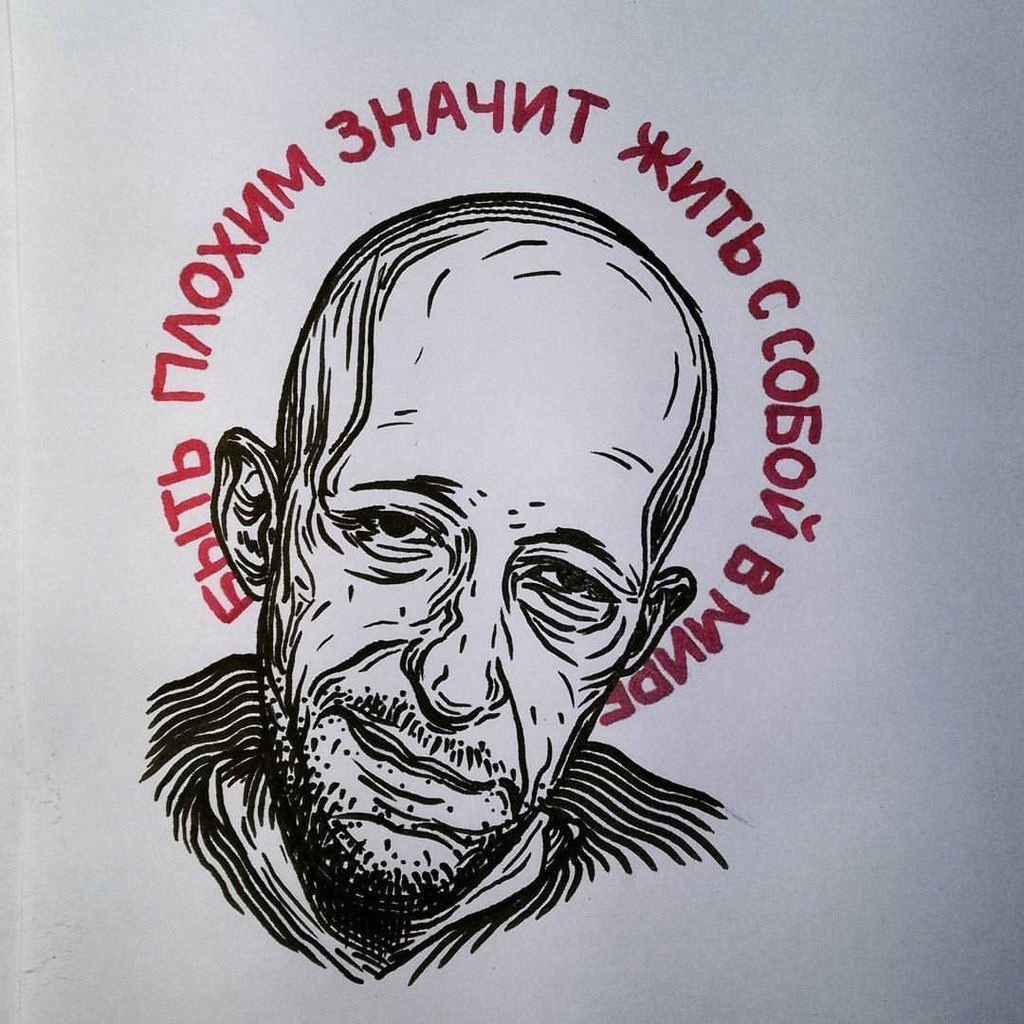 БЫТЬ ПЛОХИМ ЗНАЧИТ ЖИТЬ С СОБОЙ В МИРЕ